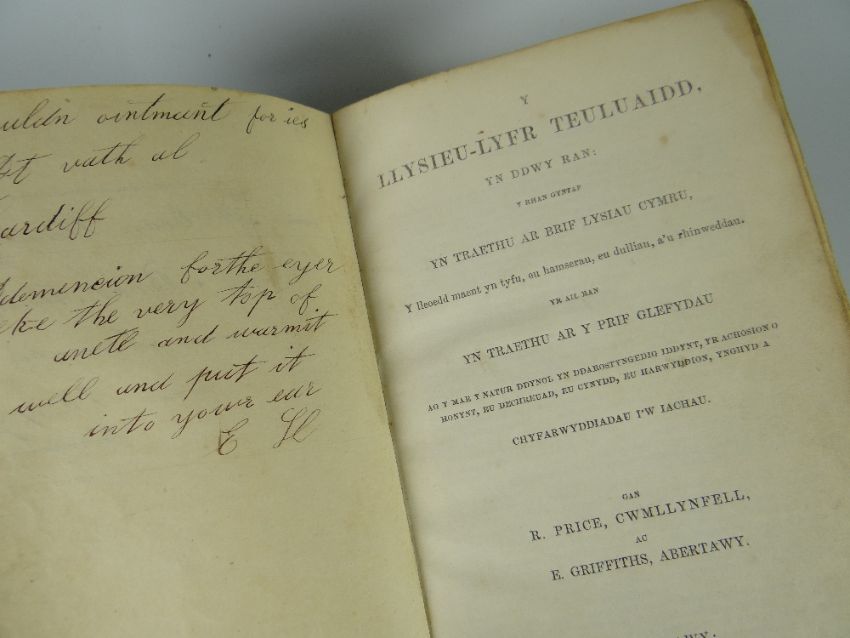 ointment for ies
vath al
ardiff
forthe eyer
the very top of
and warmit
well and put it
into your ear
Y
LLYSIEU-LYFR TEULUAIDD,
YN DDWY RAN:
Y RHAN GYNTAF
YN TRAETHU AR BRIF LYSIAU CYMRU,
Y lleoedd maent yn tyfu, eu hamserau, eu dulliau, a'u rhinweddau.
YR AIL RAN
YN TRAETHU AR Y PRIF GLEFYDAU
AG Y MAE Y NATUR DDYNOL YN DDAROSTYNGEDIG IDDYNT, YR ACHOSION O
HONYNT, EU DECHREUAD, EU CYNYDD, EU HARWYDDION, YNGHYD A
CHYFARWYDDIADAU I'W IACHAU.
GAN
R. PRICE, CWMLLYNFELL,
AC
E. GRIFFITHS, ABERTAWY.